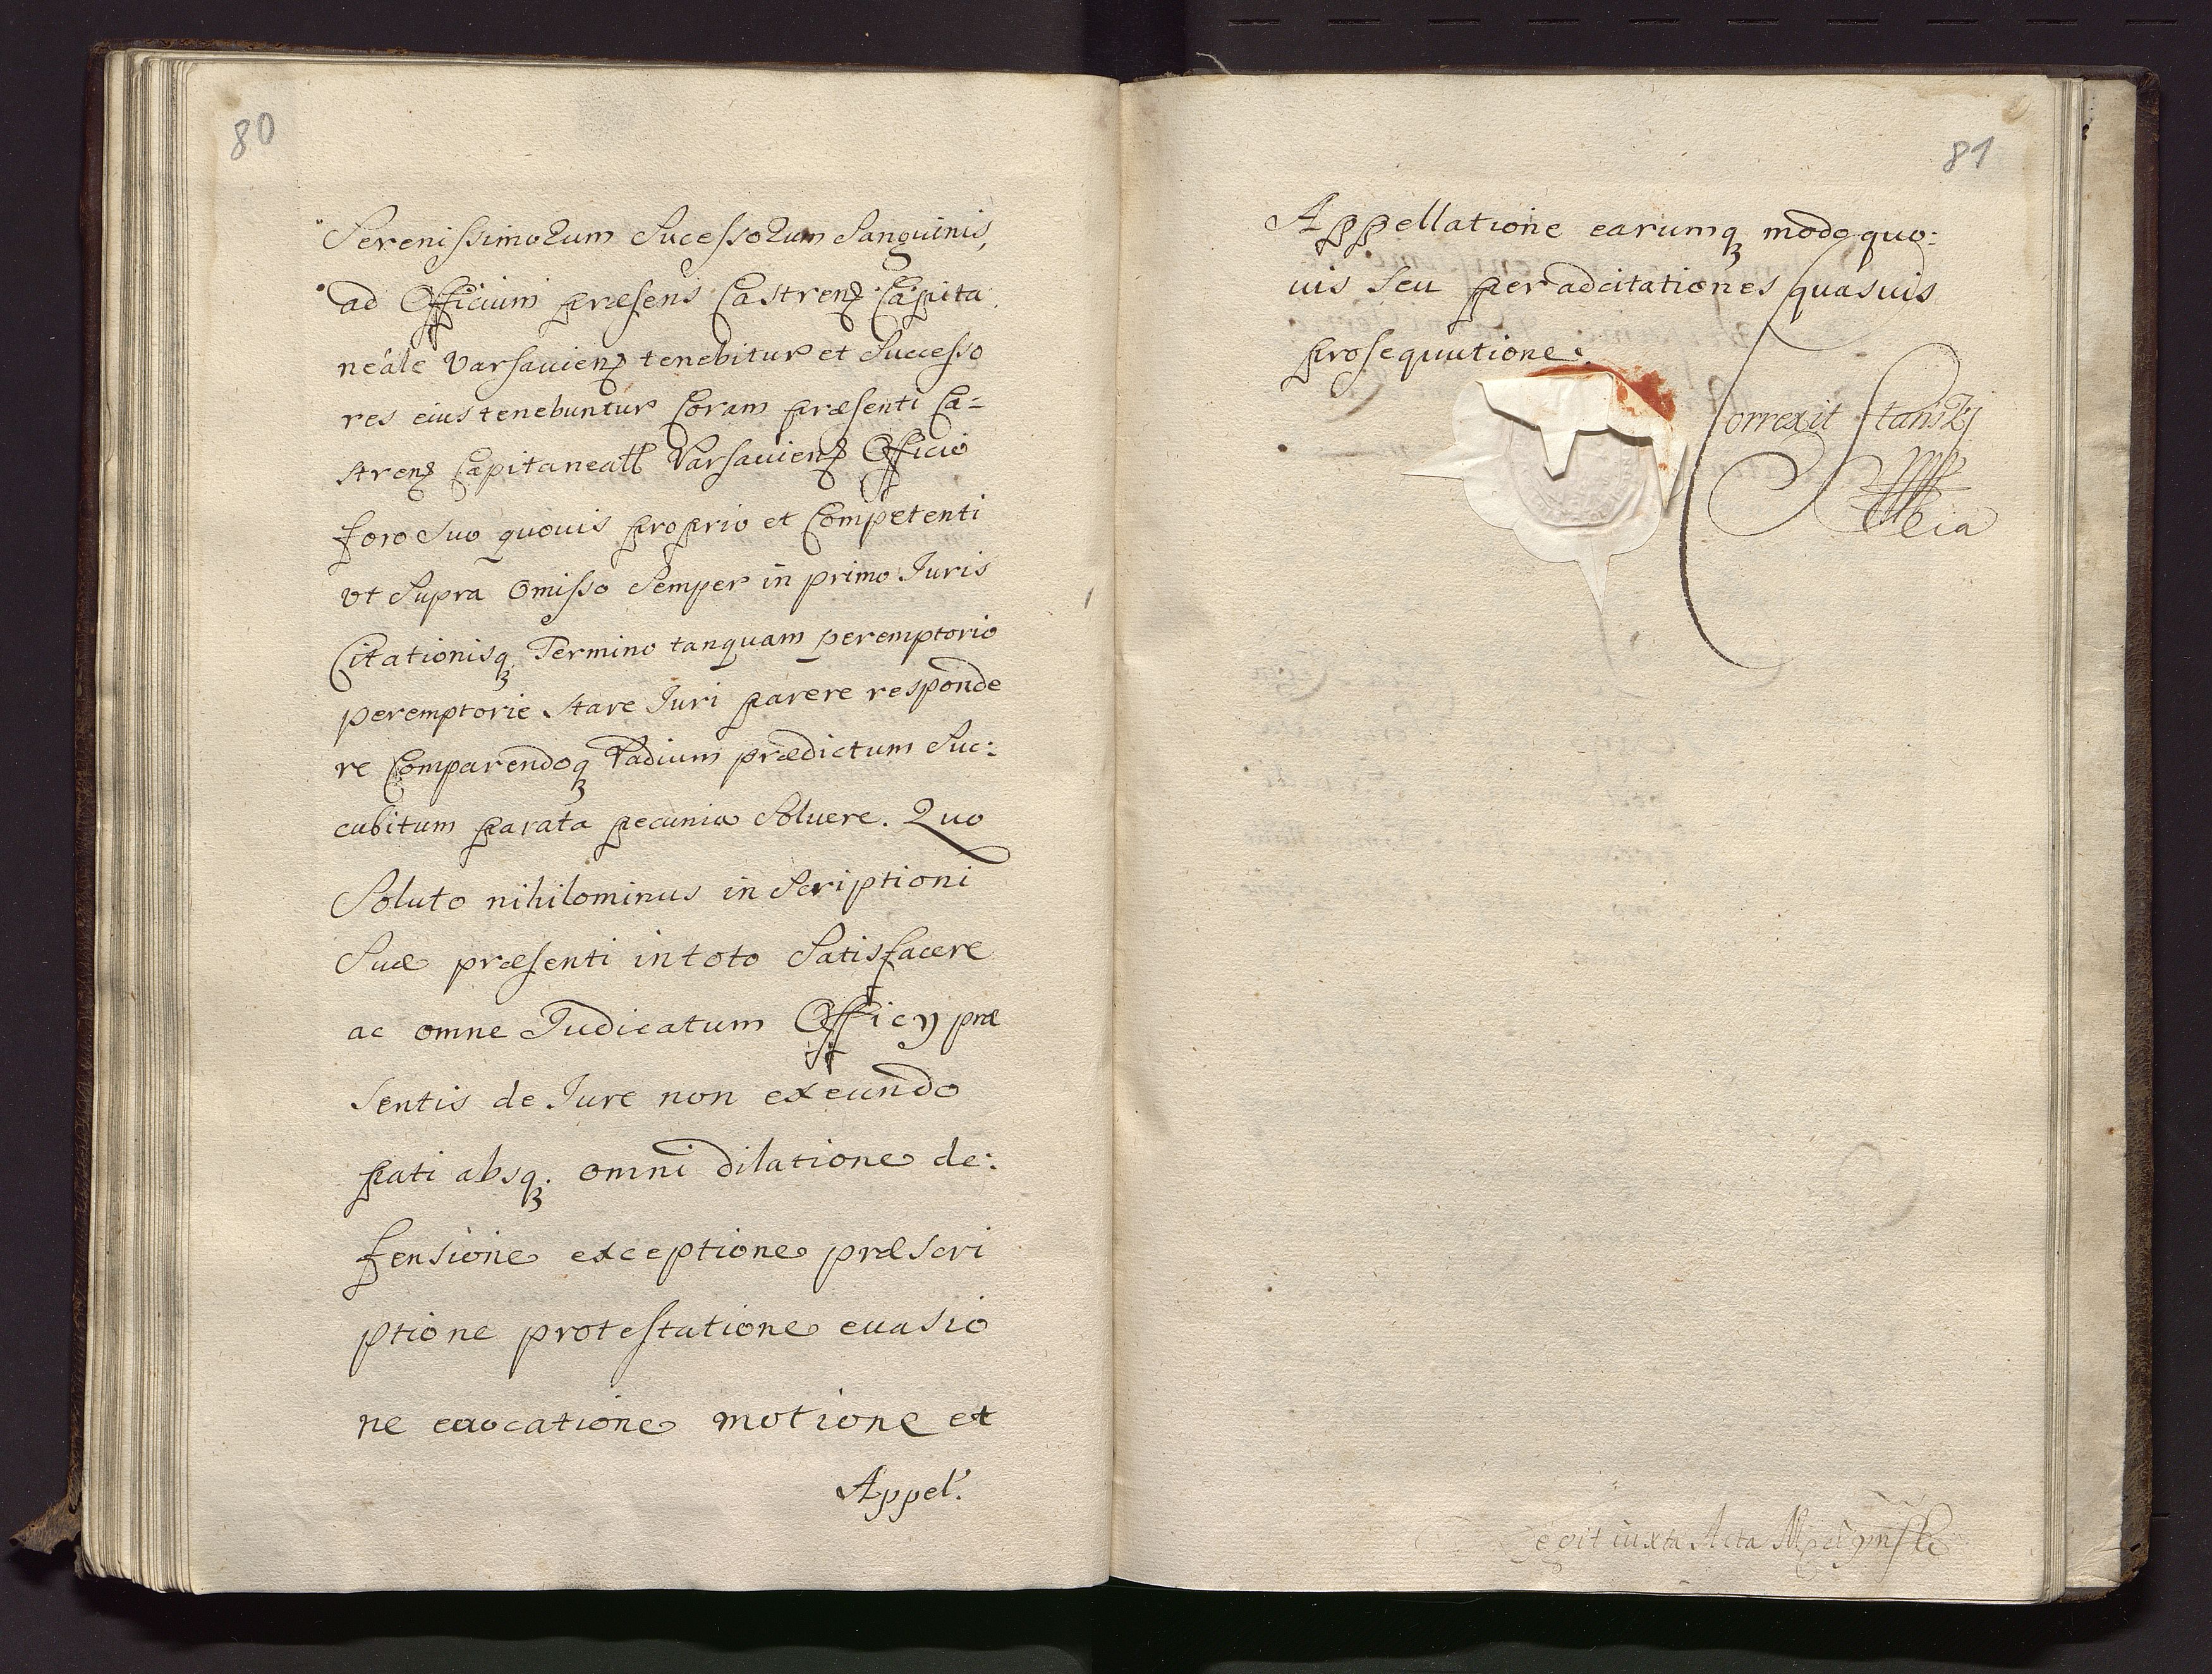 80
Serenissimorum Sucessorum Sanguinis,
ad Officium præsens Castrenṣ Capita
neale Varsavienṣ tenebitur et Successo
res eius tenebuntur Coram præsenti Ca=
strenṣ Capitaneali Varsauienṣ Officio
foro Suo quouis proprio et Competenti
vt Supra Omisso Semper in primo Iuris
Citationisqꝫ Termino tanquam peremptorio
peremptorie Stare Iuri parere responde
re Comparendoqꝫ Vadium prædictum Suc:
cubitum parata pecunia Soluere. Quo
Soluto nihilominus in Scriptioni
Suæ præsenti in toto Satisfacere
ac omne Iudicatum Officÿ præ
sentis de Iure non exeundo
pati absqꝫ. omni dilatione de:
fensione exceptione præscri
ptione protestatione euasio
ne euocatione motione et
Appel:
81
Appellatione earumqꝫ modo quo:
uis Seu per adcitationes quasuis
prosequutione.
Correxit
Legit iuxta Acta